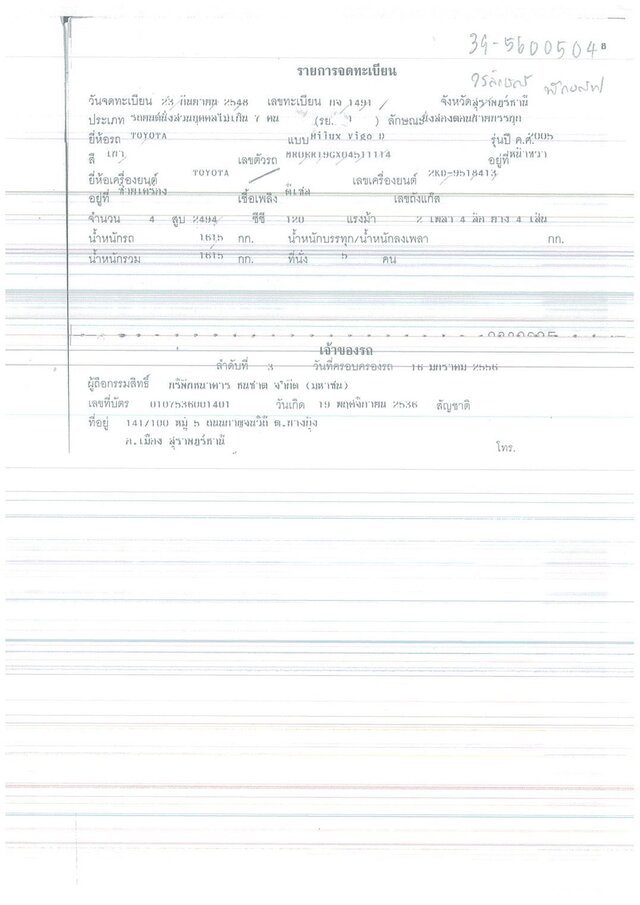 39-5600504 8
รายการจดทะเบียน
วันจดทะเบียน 23 กันยายน 2548 เลขทะเบียน กจ 1491 จังหวัดสุราษฎร์ธานี
ประเภท รถยนต์นั่งส่วนบุคคลไม่เกิน 7 คน (รย. 1 ) ลักษณะนั่งสองตอนท้ายบรรทุก
ยี่ห้อรถ TOYOTA แบบ Hilux Vigo D รุ่นปี ค.ศ. 2005
สี เทา เลขตัวรถ MR0ER19GX04511114 อยู่ที่ หน้าขวา
ยี่ห้อเครื่องยนต์ TOYOTA เลขเครื่องยนต์ 2KD-9518413
อยู่ที่ ซ้ายเครื่อง เชื้อเพลิง ดีเซล เลขถังแก๊ส
จำนวน 4 สูบ 2494 ซีซี 120 แรงม้า 2 เพลา 4 ล้อ ยาง 4 เส้น
น้ำหนักรถ 1615 กก. น้ำหนักบรรทุก/น้ำหนักลงเพลา กก.
น้ำหนักรวม 1615 กก. ที่นั่ง 5 คน
เจ้าของรถ
ลำดับที่ 3 วันที่ครอบครองรถ 16 มกราคม 2556
ผู้ถือกรรมสิทธิ์ บริษัทธนาคาร ธนชาต จำกัด (มหาชน)
เลขที่บัตร 0107536001401 วันเกิด 19 พฤศจิกายน 2536 สัญชาติ
ที่อยู่ 141/100 หมู่ 5 ถนนกาญจนวิถี ต.บางกุ้ง
อ.เมือง สุราษฎร์ธานี โทร.